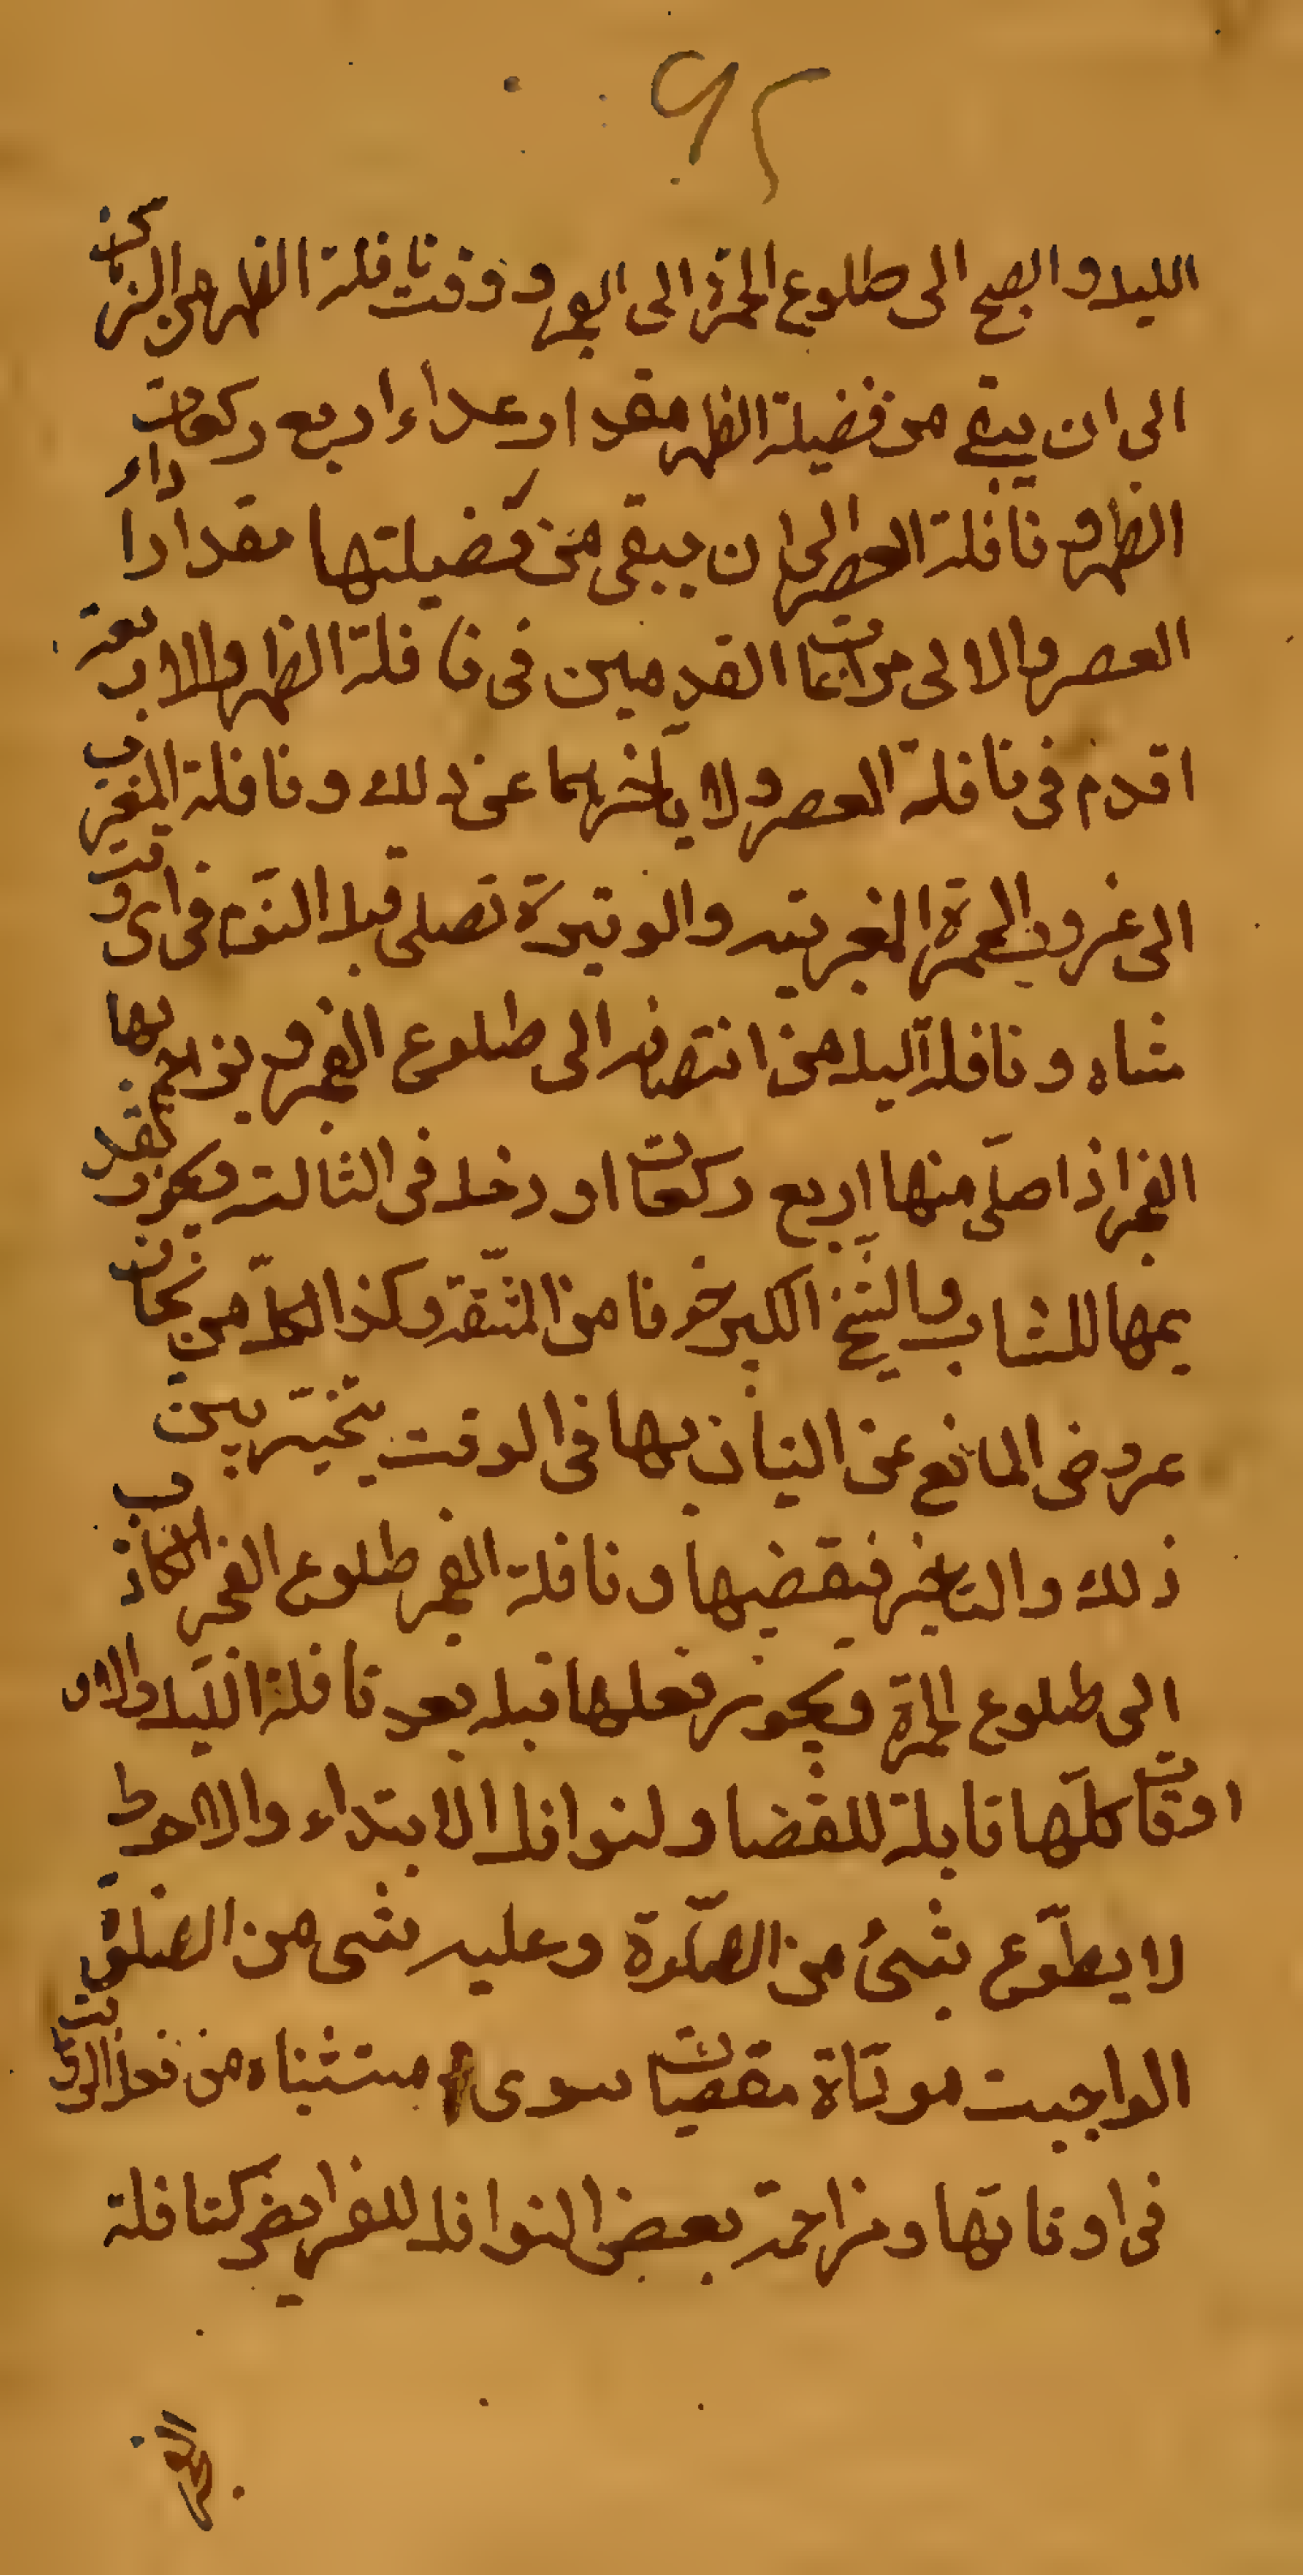 ٩٢
الليل والصبح الى طلوع الحمرة الى الفجر ووقت نافلة الظهر من الزوال
الى ان يبقى من فضيلة الظهر مقدار عداء اربع ركعات
الظهر ونافلة العصر الى ان يبقى من فضيلتها مقدار اداء
العصر والاولى مراعات القدمين فى نافلة الظهر والاربعة
اقدم فى نافلة العصر ولا ياخرهما عن ذلك ونافلة المغرب
الى غروب الحمرة المغربيه والوتيرة تصلى قبل النوم فى اى وقت
شاه ونافلة اليل من انتصافه الى طلوع الفجر ويزاحم بها
الفجر اذا صلى منها اربع ركعات او دخل فى الثالثه ويجوز تقد
يمها للشاب والشيخ الكبير خوفا من المشقة وكذا لكل من يخاف
عروض المانع عن التيان بها فى الوقت يتخير بين
ذلك والتاخير فيقضيها ونافلة الفجر طلوع الفجر الكاذب
الى طلوع الحمرة ويجوز فعلها قبله بعد نافلة الليل والاو
اوقات كلها قابلة للقضا ولنوافل الابتداء والاحوط
لا يطوع بشئ من الصلوة وعليه شى من الصلوة
الواجبت موداة مقضيات سوى مستثناه من فعل الرواتب
فى اوقاتها ومزاحمة بعض النوافل للفرايض كنافلة